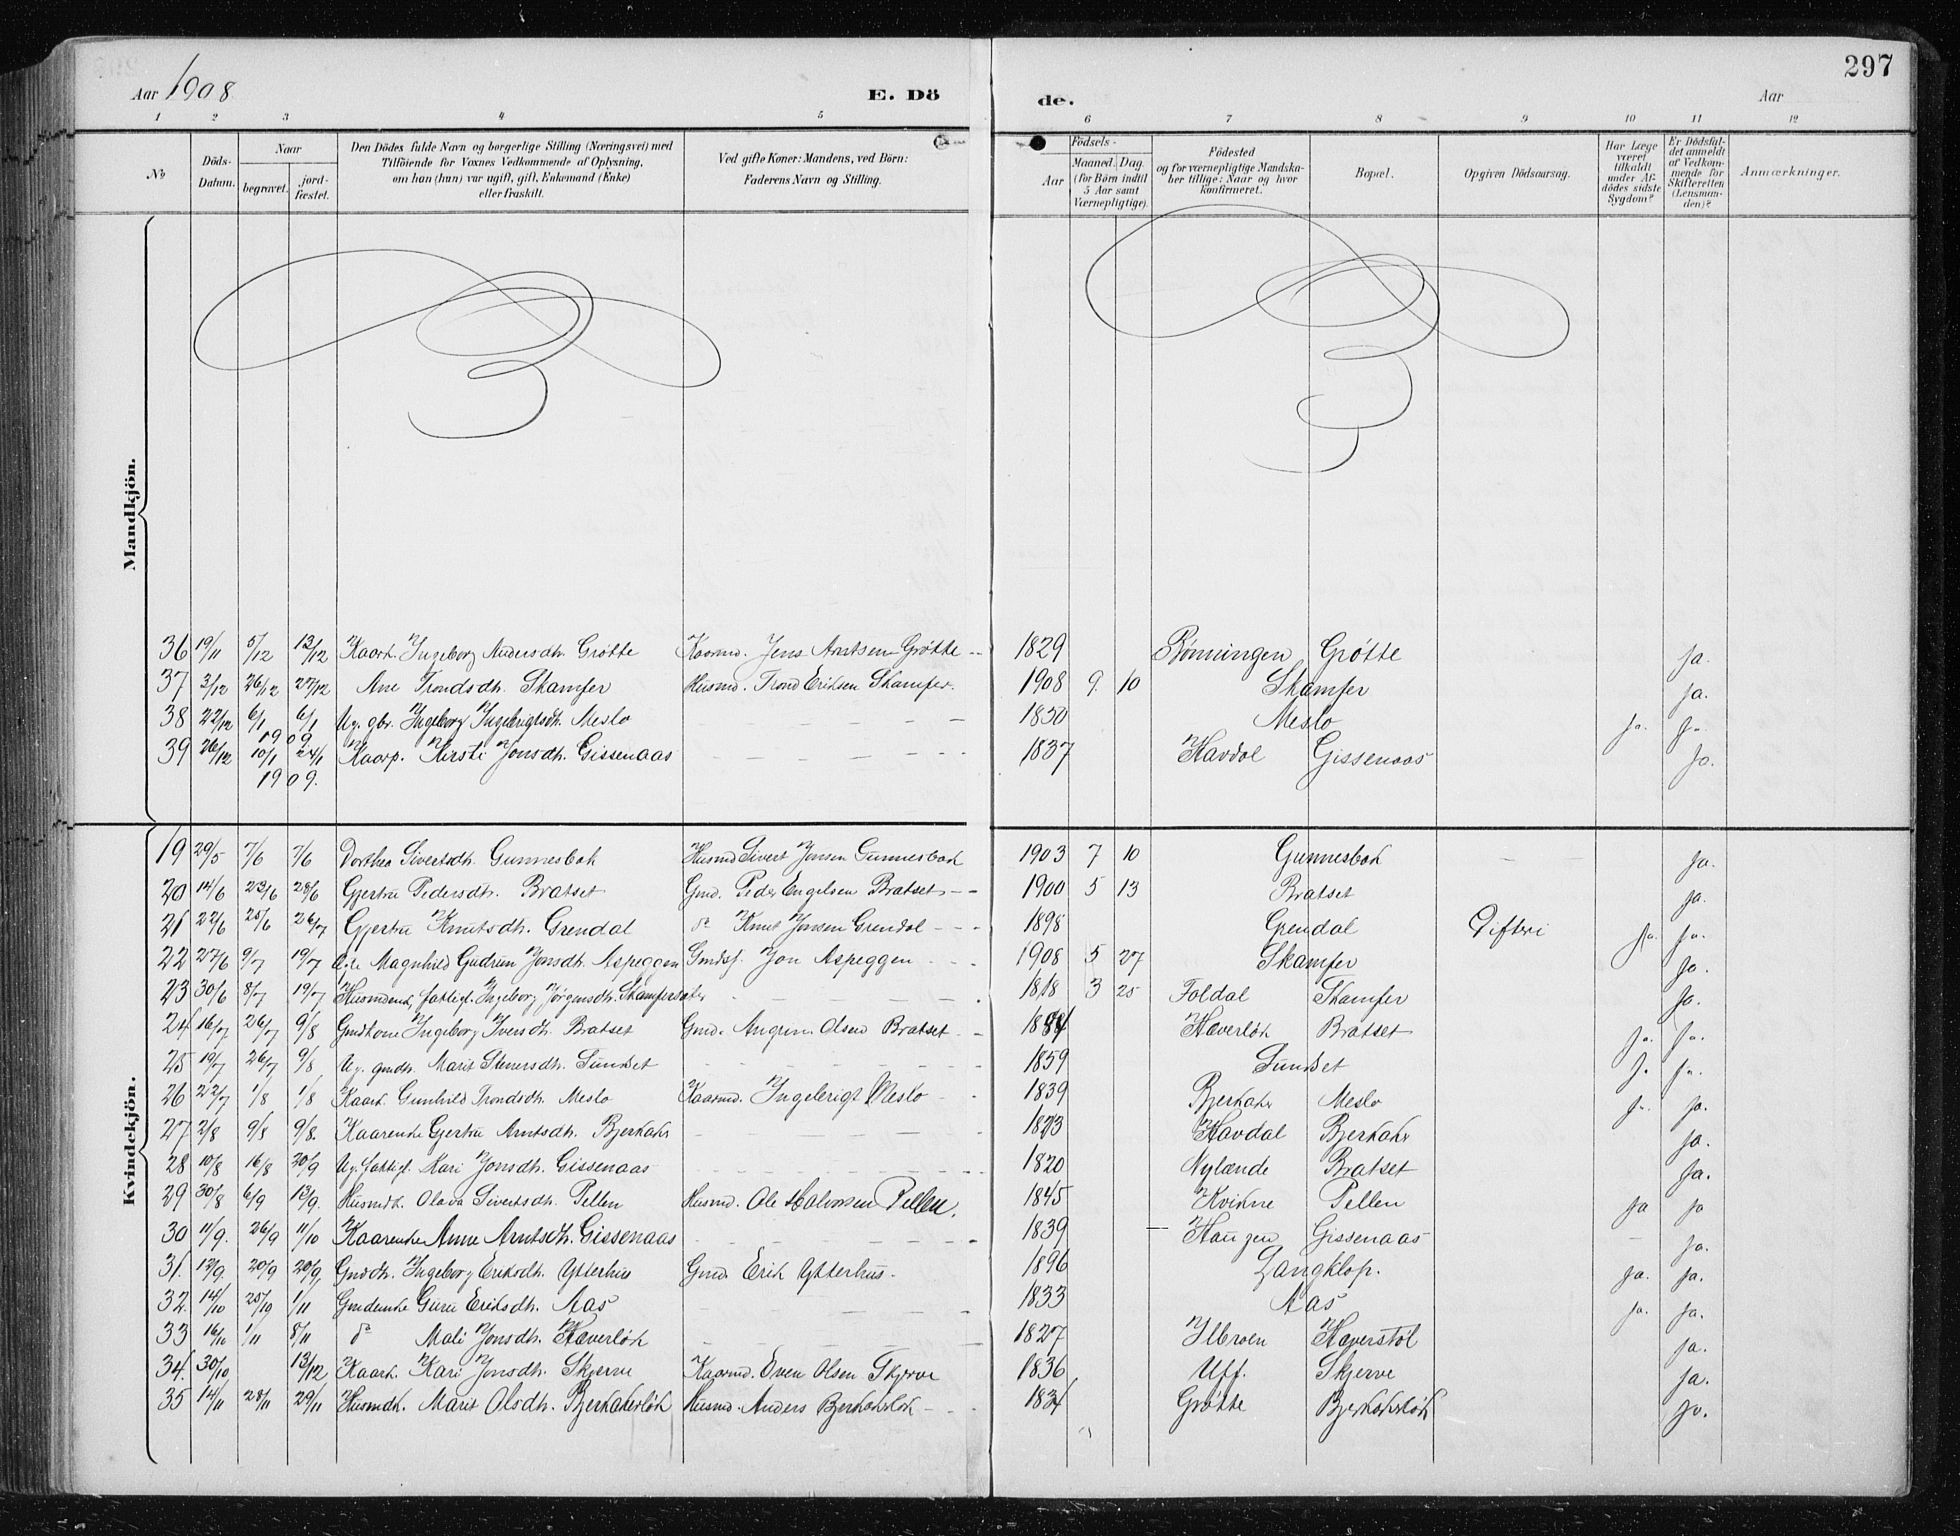 297
Aar 1908
E. Dö
de.
Aar
1 2 3 4 5 6 7 8 9 10 11 12
No
Döds-Datum.
Naar
begravet.
jord-fæstet.
Den Dödes fulde Navn og borgerlige Stilling (Næringsvei) med
Tilföiende for Voxnes Vedkommende af Oplysning,
om han (hun) var ugift, gift, Enkemand (Enke)
eller fraskilt.
Ved gifte Koner: Mandens, ved Börn:
Faderens Navn og Stilling.
Födsels-
Aar
Maaned. Dag.
(for Börn indtil
5 Aar samt
Værnepligtige).
Födested
og for værnepligtige Mandska-
ber tillige: Naar og hvor
konfirmeret.
Bopæl.
Opgiven Dödsaarsag.
Har Læge
været
tilkaldt
under Af-
dödes sidste
Sygdom?
Er Dödsfal-
det anmeldt
af Vedkom-
mende for
Skifteretten
(Lensman-
den)?
Anmærkninger.
Mandkjön.
36 19/11 5/12 13/12 Kaark. Ingeborg Andersdh. Grötte Kaarmd. Jens Arntsen Grøtte -- 1829 Rönningen Grøtte ja.
37 3/12 26/12 27/12 Ane Trondsdh. Skamfer Husmd. Trond Eriksen Skamfer. 1908 9. 10 Skamfer ja.
38 22/12 6/1 6/1 Ug. gbr. Ingeborg Ingebrigtsdh. Meslo 1850 Meslo ja. ja.
1909
39 26/12 10/1 24/1 Kaarp. Kirsti Jonsdh. Gissenaas 1837 Havdal Gissenaas ja.
1909.
Kvindekjön.
19 29/5 7/6 7/6 Dorthea Sivertsdh. Gunnesbak Husmd Sivert Jonsen Gunnesbak 1903 7 10 Gunnesbak ja.
20 14/6 23/6 28/6 Gjertru Pedersdh. Bratset Gmd. Peder Engelsen Bratset -- 1900 5 13 Bratset ja.
21 22/6 25/6 26/7 Gjertru Knutsdh. Grendal do Knut Jonsen Grendal --- 1898 Grendal Difteri ja. ja.
22 27/6 9/7 19/7 Magnhild Gudrun Jonsdh. Aspeggen Gmdsf. Jon Aspeggen 1908 5 27 Skamfer ja.
23 30/6 8/7 19/7 Husmdenk. fattigl. Ingeborg Jørgensdh. 1818 3 25 Foldal Skamfer ja.
24 16/7 26/7 9/8 Gmdkone Ingeborg Iversdh. Bratset Gmd. Olsen Bratset Haverløk Bratset ja. ja.
25 19/7 26/7 9/8 Ug. gmdh. Marit Stenersdh. Sundset 1859 Sundset ja. ja.
26 22/7 1/8 1/8 Kaark. Gunhild Trondsdh. Meslo Kaarmd. Ingebrigt Meslo 1839 Bjerkaker Meslo ja. ja.
27 2/8 9/8 9/8. Kaarenke Gjertru Arntsdh. Bjerkaker 1823 Havdal Bjerkaker ja.
28 10/8 16/8 20/9 Ug. fattigl. Kari Jonsdh. Gissenaas 1820 Nylænde Bratset ja.
29 30/8 6/9 13/9. Husmdk. Olava Sivertsdh. Pellen Husmd. Ole Halvorsen Pellen. 1845 Kvikne Pellen ja ja
30 11/9. 26/9 11/10 Kaarenke Anne Arntsdh. Gissenaas 1839 Haugen Gissenaas ja.
31. 12/9. 20/9 20/9. Gmddh. Ingeborg Eriksdh. Ytterhus Gmd. Erik Ytterhus. 1896 Langklop. ja. ja.
32. 14/10 25/10 1/11 Gmdenke Guru Eriksdh. Aas 1833 Aas ja. ja.
33 1/11 8/11 do Mali Jonsdh. Haverløk 1827 Ilbroen ja.
34. 30/10 13/12 Kaark. Kari Jonsdh. Skjerve Kaarmd. Even Olsen Skjerve 1836 Uff. Skjerve ja.
35 14/11 28/11 29/11 Husmdk. Marit Olsdh. Bjerkakerløk Husmd. Anders Bjerkakerløk 1834 Grøtte Bjerkakerløk ja.